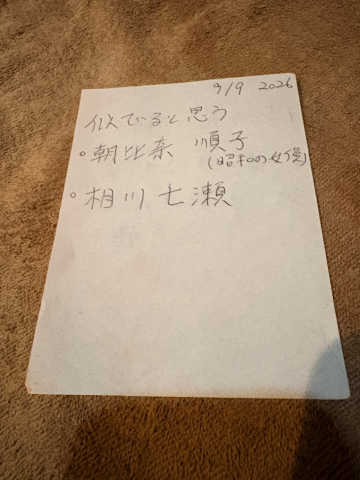 9/9 2026
似てると思う
○朝比奈 順子
(昭和の女優)
○相川七瀬